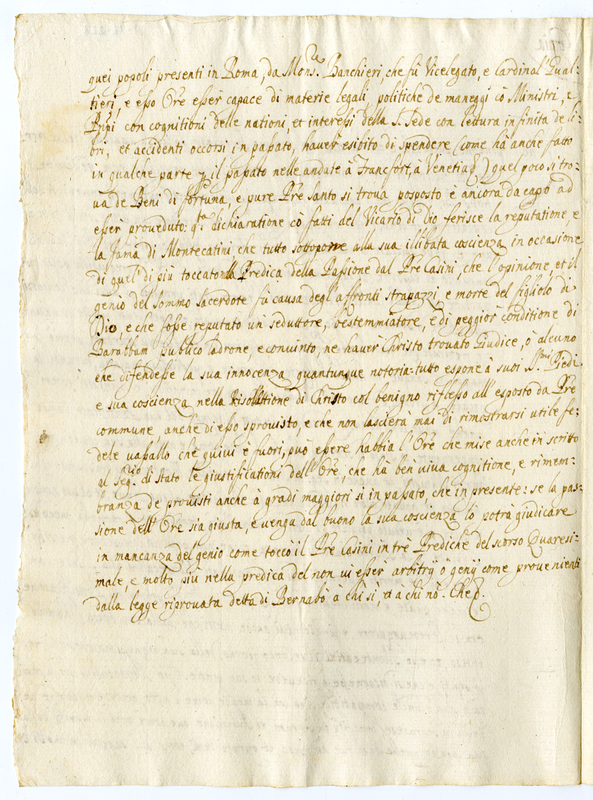 quei popoli presenti in Roma, da Mons.re Banchieri, che fù Vicelegato, e Cardinal Gual-
tieri, e esso Ore esser capace di materie legali, politiche de maneggi cò Ministri, e
Prīpi con cognitioni delle nationi, et interessi della S. Sede con lettura infinita de li-
bri, et accidenti occorsi in papato, haver esibito di spendere (come hà anche fatto
in qualche parte il passato nelle andate à Francfort, à Venetia) quel poco si tro-
va de Beni di fortuna, e pure Pre Santo si trova posposto è ancora da capo ad
esser proveduto; q.ta dichiaratione cò fatti del Vicario di Dio ferisce la reputatione e
la fama di Montecatini che tutto sottopone alla sua illibata coscienza in occasione
di quel di più toccato nella Predica della Passione dal Pre Casini, che l'opinione, et il
genio del Sommo Sacerdote fù causa degl'affronti strapazzi, e morte del figliolo di
Dio, e che fosse reputato un seduttore, bestemmiatore, e di peggior conditione di
Barabbam publico ladrone, e convinto, ne haver Christo trovato Giudice, ò alcuno
che difendesse la sua innocenza quantunque notoria: tutto espone à suoi S.mi Piedi
e sua coscienza nella Risolutione di Christo col benigno riflesso all'esposto da Pre
commune anche di esso sprovisto, e che non lascierà mai di rimostrarsi utile fe-
dele vassallo che quivi è fuori, può essere habbia l'Ore che mise anche in scritto
al Seg.rio di stato le giustificationi dell'Ore, che hà ben viva cognitione, e rimem-
branza de provisti anche à gradi maggiori si in passato, che in presente: se la pas-
sione dell'Ore sia giusta, e venga dal buono la sua coscienza lo potrà giudicare
in mancanza del genio come toccò il Pre Casini in trè Prediche del scorso Quaresi-
male, e molto più nella predica del non vi esser arbitrij ò genij come provenienti
dalla legge riprovata detta di Bernabò à chi si, et à chi nò. Che